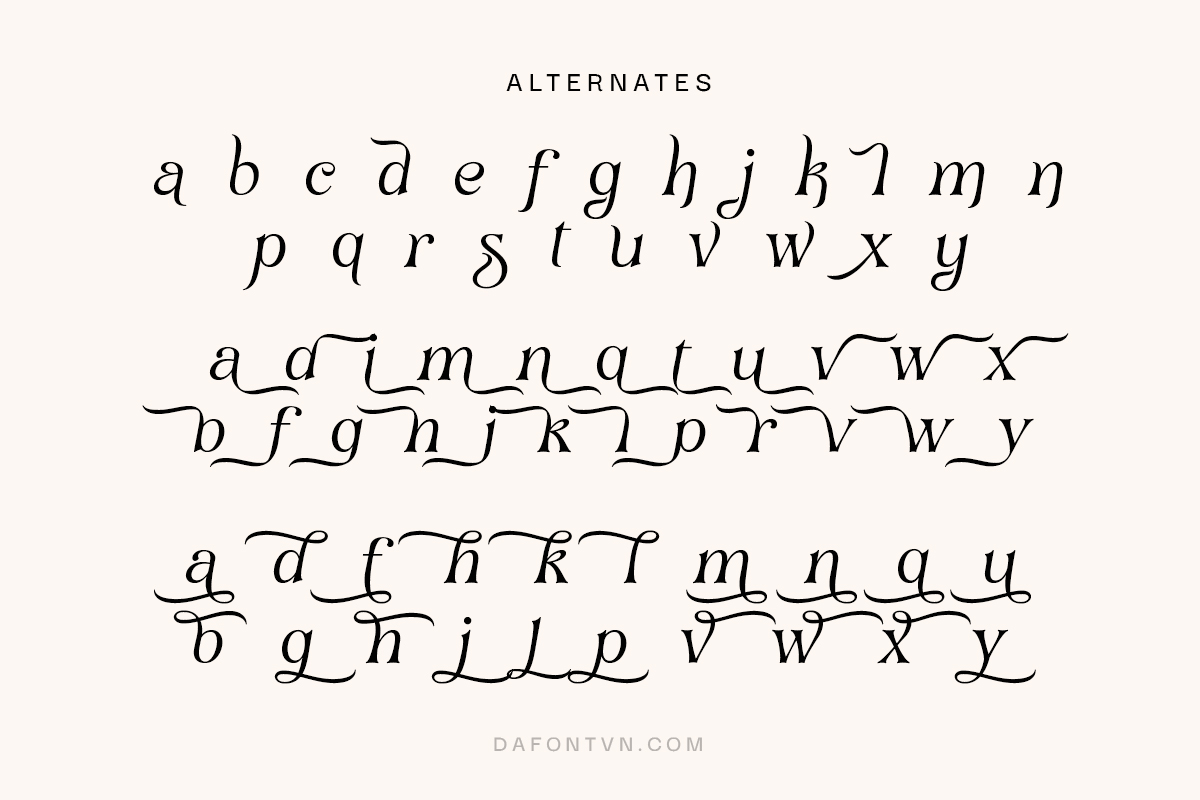 ALTERNATES
a b c d e f g h j k l m n
p q r s t u v w x y
a d i m n q t u v w x
b f g h j k l p r v w y
a d f h k l m n q u
b g h j l p v w x y
DAFONTVN.COM